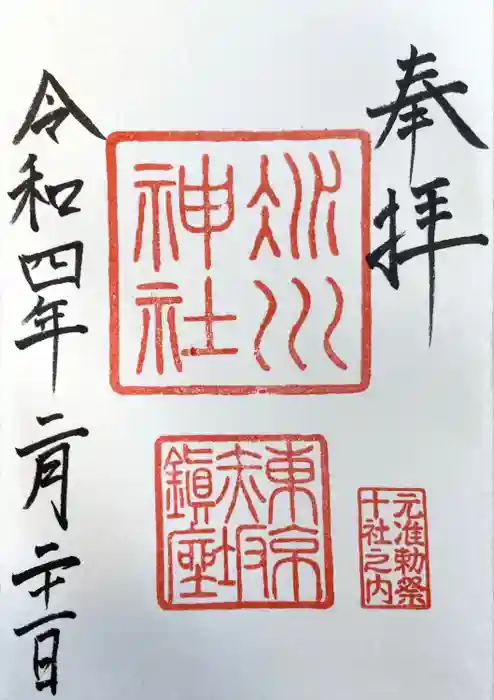 奉拝
冰川
神社
東京
赤坂
鎭座
元准勅祭
十社之内
令和四年二月二十一日